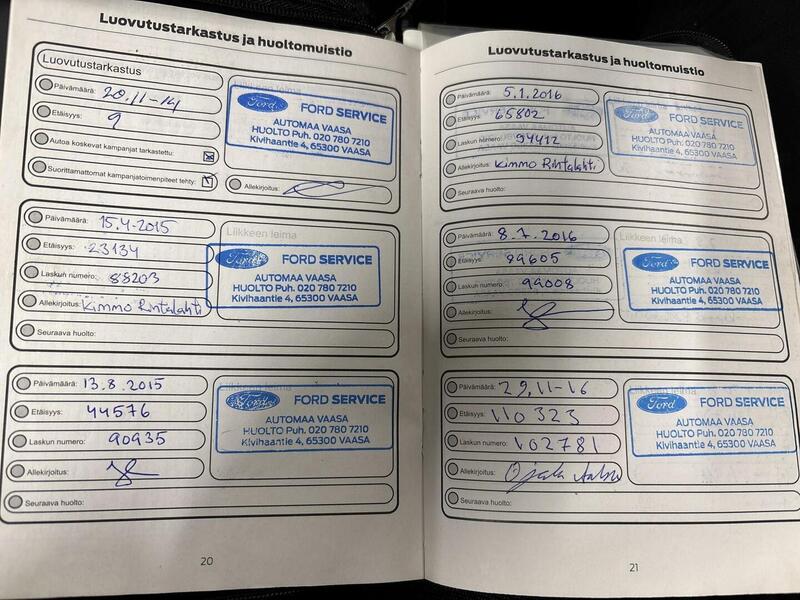 Luovutustarkastus ja huoltomuistio
Luovutustarkastus
Liikkeen leima
Päivämäärä: 20.11-14
Etäisyys: 9
Autoa koskevat kampanjat tarkastettu:
Suorittamattomat kampanjatoimenpiteet tehty:
Ford FORD SERVICE
AUTOMAA VAASA
HUOLTO Puh. 020 780 7210
Kivihaantie 4, 65300 VAASA
Allekirjoitus:
Päivämäärä: 15.4-2015
Etäisyys: 23134
Laskun numero: 88203
Allekirjoitus: Kimmo Rintalahti
Seuraava huolto:
Liikkeen leima
Ford FORD SERVICE
AUTOMAA VAASA
HUOLTO Puh. 020 780 7210
Kivihaantie 4, 65300 VAASA
Päivämäärä: 13.8.2015
Etäisyys: 44576
Laskun numero: 90935
Allekirjoitus:
Seuraava huolto:
Liikkeen leima
Ford FORD SERVICE
AUTOMAA VAASA
HUOLTO Puh. 020 780 7210
Kivihaantie 4, 65300 VAASA
20
Luovutustarkastus ja huoltomuistio
Päivämäärä: 5.1.2016
Etäisyys: 65802
Laskun numero: 94412
Allekirjoitus: Kimmo Rintalahti
Seuraava huolto:
Ford FORD SERVICE
AUTOMAA VAASA
HUOLTO Puh. 020 780 7210
Kivihaantie 4, 65300 VAASA
Päivämäärä: 8.7.2016
Etäisyys: 89605
Laskun numero: 99008
Allekirjoitus:
Seuraava huolto:
Liikkeen leima
Ford FORD SERVICE
AUTOMAA VAASA
HUOLTO Puh. 020 780 7210
Kivihaantie 4, 65300 VAASA
Päivämäärä: 29.11-16
Etäisyys: 110323
Laskun numero: 102781
Allekirjoitus: Ojala
Seuraava huolto:
Liikkeen leima
Ford FORD SERVICE
AUTOMAA VAASA
HUOLTO Puh. 020 780 7210
Kivihaantie 4, 65300 VAASA
21